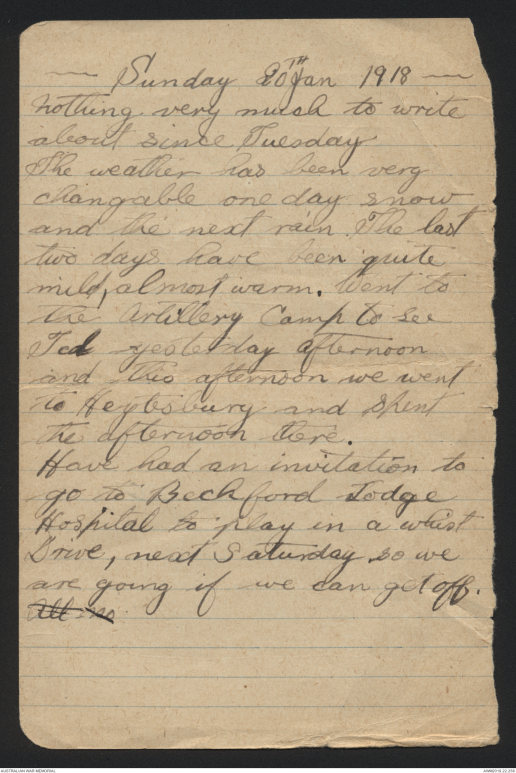 Sunday 20TH Jan 1918
nothing very much to write
about since Tuesday
The weather has been very
changable one day snow
and the next rain. The last
two days have been quite
mild, almost warm. Went to
the Artillery Camp to see
Ted yesterday afternoon
and this afternoon we went
to Heytesbury and spent
the afternoon there.
Have had an invitation to
go to Beckford Lodge
Hospital to play in a whist
Drive, next Saturday so we
are going if we can get off.
All no
AUSTRALIAN WAR MEMORIAL